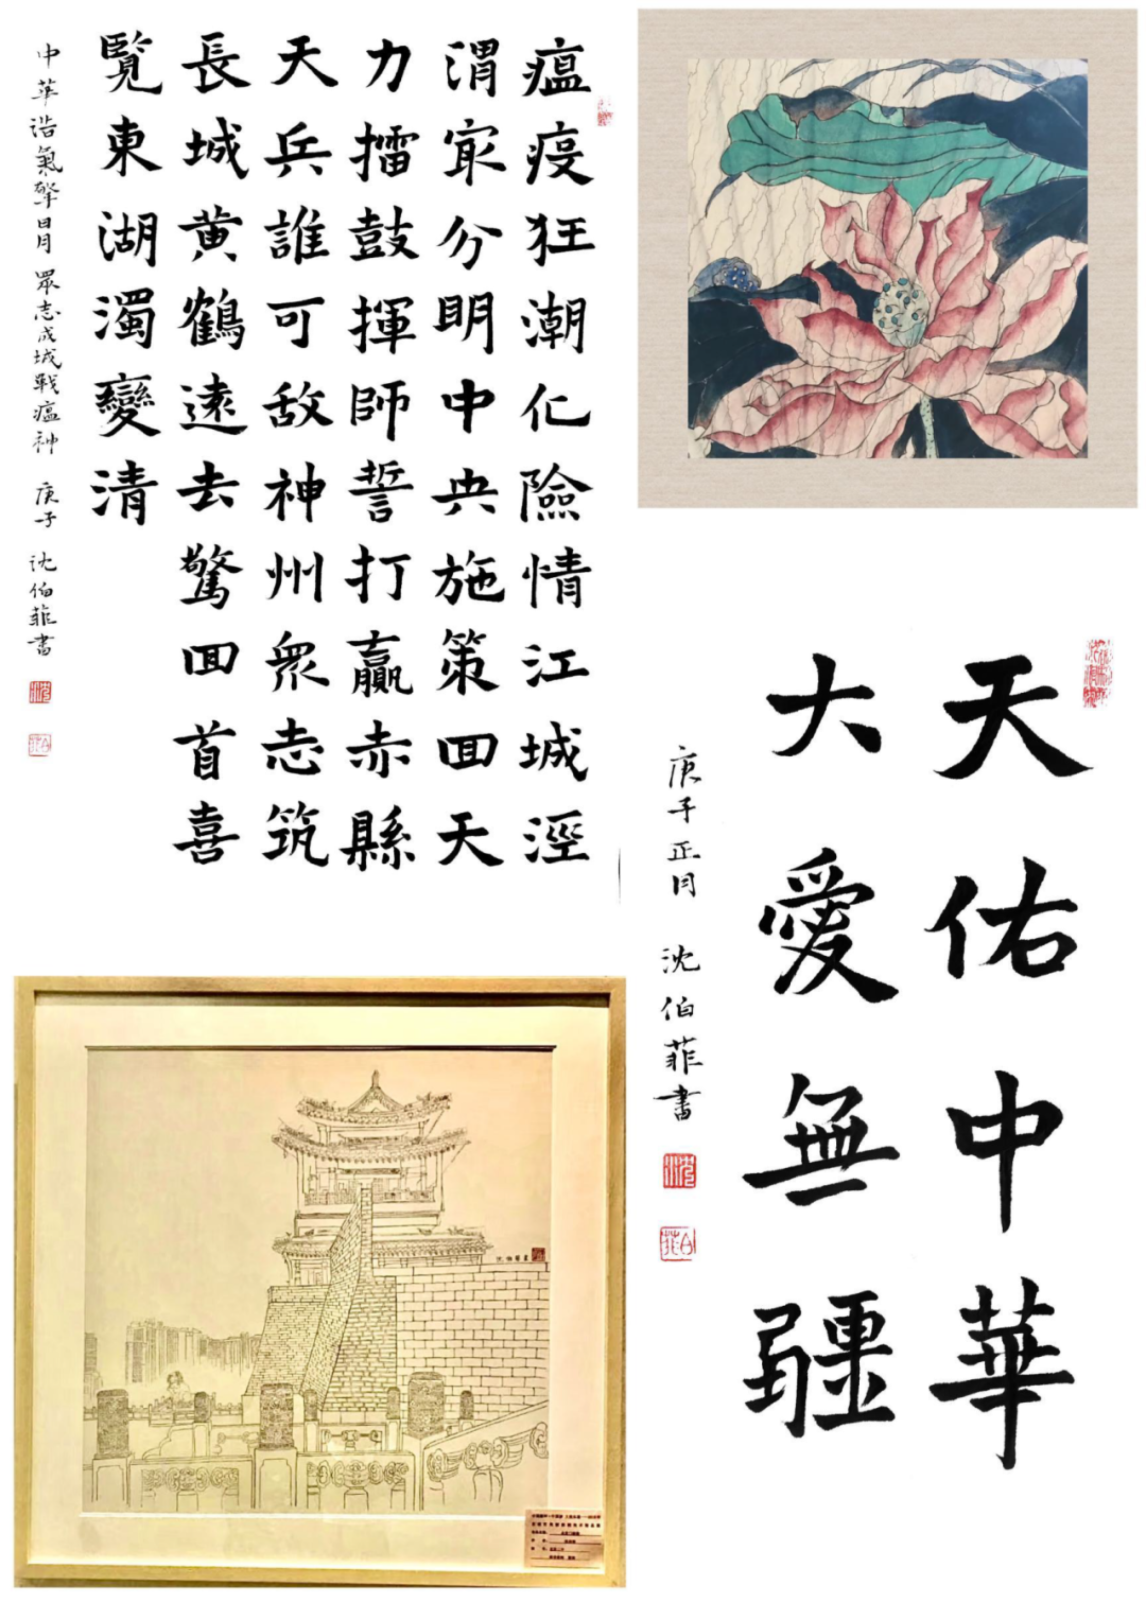 瘟疫狂潮化險情江城涇
渭㝡分明中央施策回天
力擂鼓揮師誓打贏赤縣
天兵誰可敌神州衆志筑
長城黄鶴遠去驚回首喜
覽東湖濁變清
中華浩氣擎日月 眾志成城戰瘟神 庚子 沈伯菲書
天佑中華
大愛無疆
庚子正月 沈伯菲書
沈伯菲畫